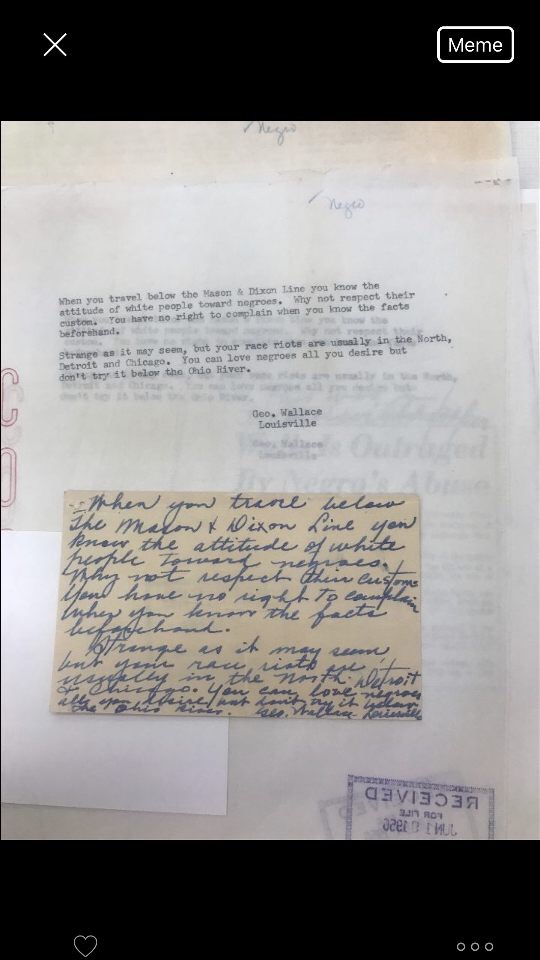 Meme
Negro
Negro
When you travel below the Mason & Dixon Line you know the
attitude of white people toward negroes. Why not respect their
custom. You have no right to complain when you know the facts
beforehand.
Strange as it may seem, but your race riots are usually in the North,
Detroit and Chicago. You can love negroes all you desire but
don't try it below the Ohio River.
Geo. Wallace
Louisville
Is Outraged
By Negro's Abuse
When you travel below
The Mason & Dixon Line you
know the attitude of white
people toward negroes.
Why not respect their customs
You have no right to complain
when you know the facts
beforehand.
Strange as it may seem
but your race riots are
usually in the North. Detroit
& Chicago. You can love negroes
all you desire but don't try it below
The Ohio River. Geo. Wallace Louisville
RECEIVED
FOR FILE
JUN 1 1956